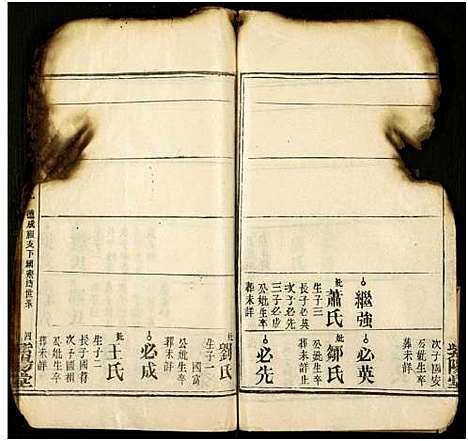 次子國安
公妣生卒
葬未詳
繼強
妣
蕭氏
生子三
長子必英
次子必先
三子必成
公妣生卒
葬未詳
必英
妣
鄒氏
公妣生卒
葬未詳
必先
妣
劉氏
生子一
國富
公妣生卒
葬未詳
必成
妣
王氏
生子二
長子國符
次子國祖
公妣生卒
葬未詳
四